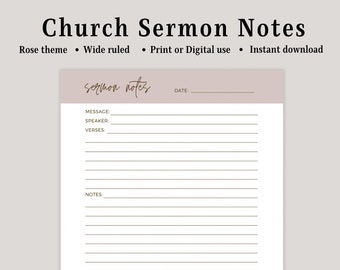 Church Sermon Notes
Rose theme • Wide ruled • Print or Digital use • Instant download
sermon notes DATE:
MESSAGE:
SPEAKER:
VERSES:
NOTES: